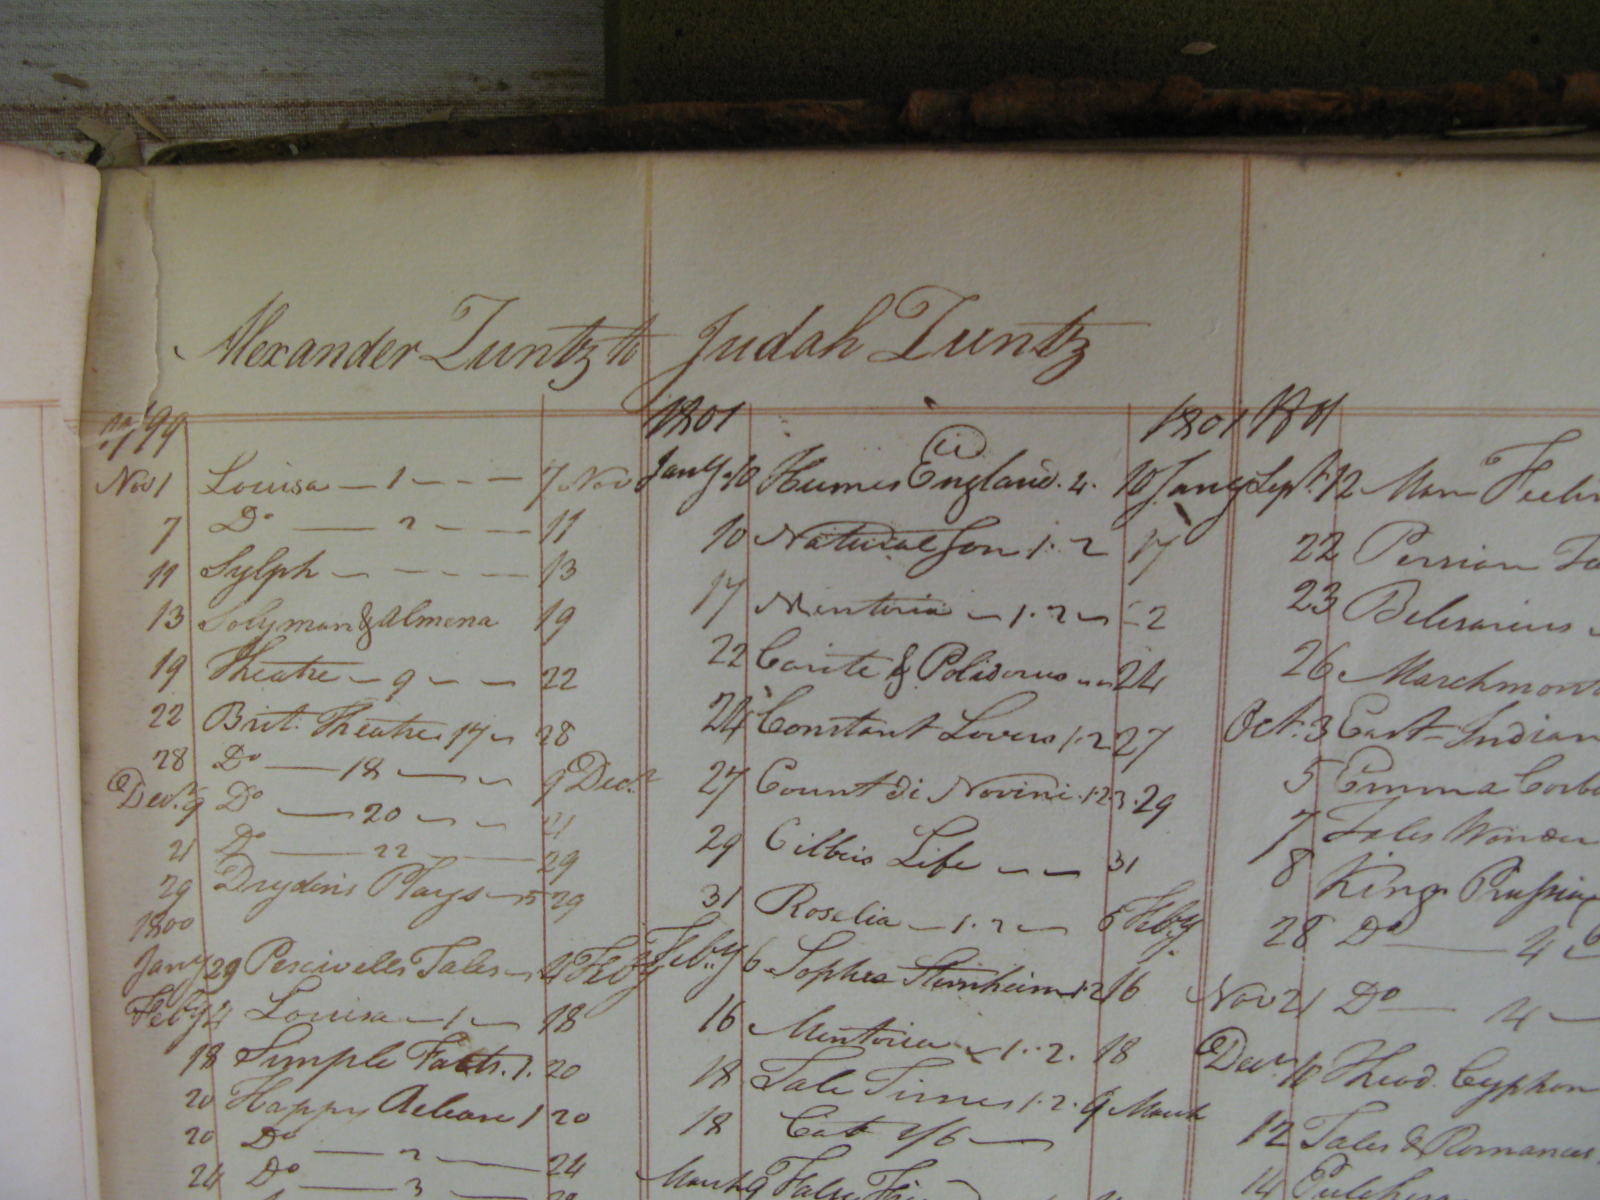 Alexander Zuntz to Judah Zuntz
1799
Nov 1 Louisa — 1 - - — 7 Nov
7 Do — 2 - - — 11
11 Sylph — - - - — 13
13 Solyman & Almena 19
19 Theatre — 9 — — 22
22 Brit. Theatre 17 — 28
28 Do — 18 — — 9 Decr
Decr 9 Do — 20 — — 21
21 Do — 22 — 29
29 Drydens Plays — 5 29
1800
Jany 29 Percivells Tales — 4 Feby
Feby 4 Louisa — 1 — 18
18 Simple Facts. 1. 20
20 Happy Release 1 20
20 Do — 2 — 24
24 Do — 3
1801 1801
Jany 10 Humes England. 4. 10 Jany
10 Natural Son 1. 2 17
17 Mentoria — 1. 2 — 22
22 Carite & Polidorus 24
24 Constant Lovers 1. 2 27
27 Count di Novini 1. 2. 3. 29
29 Cibbers Life — — 31
31 Roselia — 1. 2 — 6 Feby
Feby 6 Sophia Sternheim 1 2 16
16 Mentoria — 1. 2. 18
18 Tale Times 1. 2. 9 March
18 Cat 2/6 —
March 9 False
1801
Sept. 12 Man Feelin
22 Persian Ta
23 Belisarius
26 Marchmont
Oct. 3 East Indian
5 Emma Corb
7 Tales Wonder
8 King Prussia
28 Do — 4
Nov 21 Do — 4 —
Decr 10 Theod. Cyphon
12 Tales & Romances
14